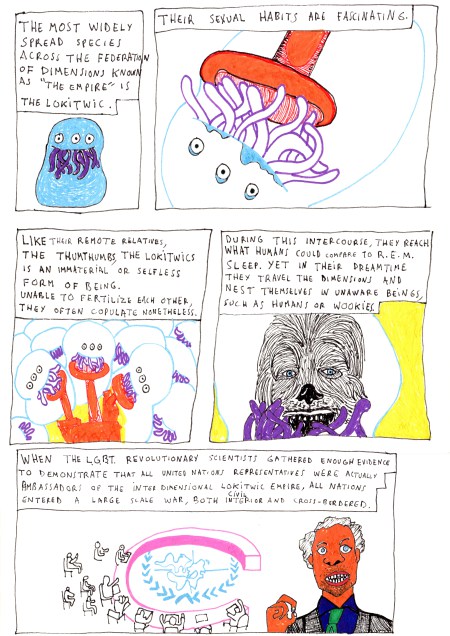 THE MOST WIDELY
SPREAD SPECIES
ACROSS THE FEDERATION
OF DIMENSIONS KNOWN
AS "THE EMPIRE" IS
THE LOKITWIC.
THEIR SEXUAL HABITS ARE FASCINATING.
LIKE THEIR REMOTE RELATIVES,
THE THUMTHUMBS, THE LOKITWICS
IS AN IMMATERIAL OR SELFLESS
FORM OF BEING.
UNABLE TO FERTILIZE EACH OTHER,
THEY OFTEN COPULATE NONETHELESS.
DURING THIS INTERCOURSE, THEY REACH
WHAT HUMANS COULD COMPARE TO R.E.M.
SLEEP. YET IN THEIR DREAMTIME
THEY TRAVEL THE DIMENSIONS AND
NEST THEMSELVES IN UNAWARE BEINGS,
SUCH AS HUMANS OR WOOKIES.
WHEN THE L.G.B.T. REVOLUTIONARY SCIENTISTS GATHERED ENOUGH EVIDENCE
TO DEMONSTRATE THAT ALL UNITED NATIONS REPRESENTATIVES WERE ACTUALLY
AMBASSADORS OF THE INTER DIMENSIONAL LOKITWIC EMPIRE, ALL NATIONS
ENTERED A LARGE SCALE WAR, BOTH CIVIL INTERIOR AND CROSS-BORDERED.